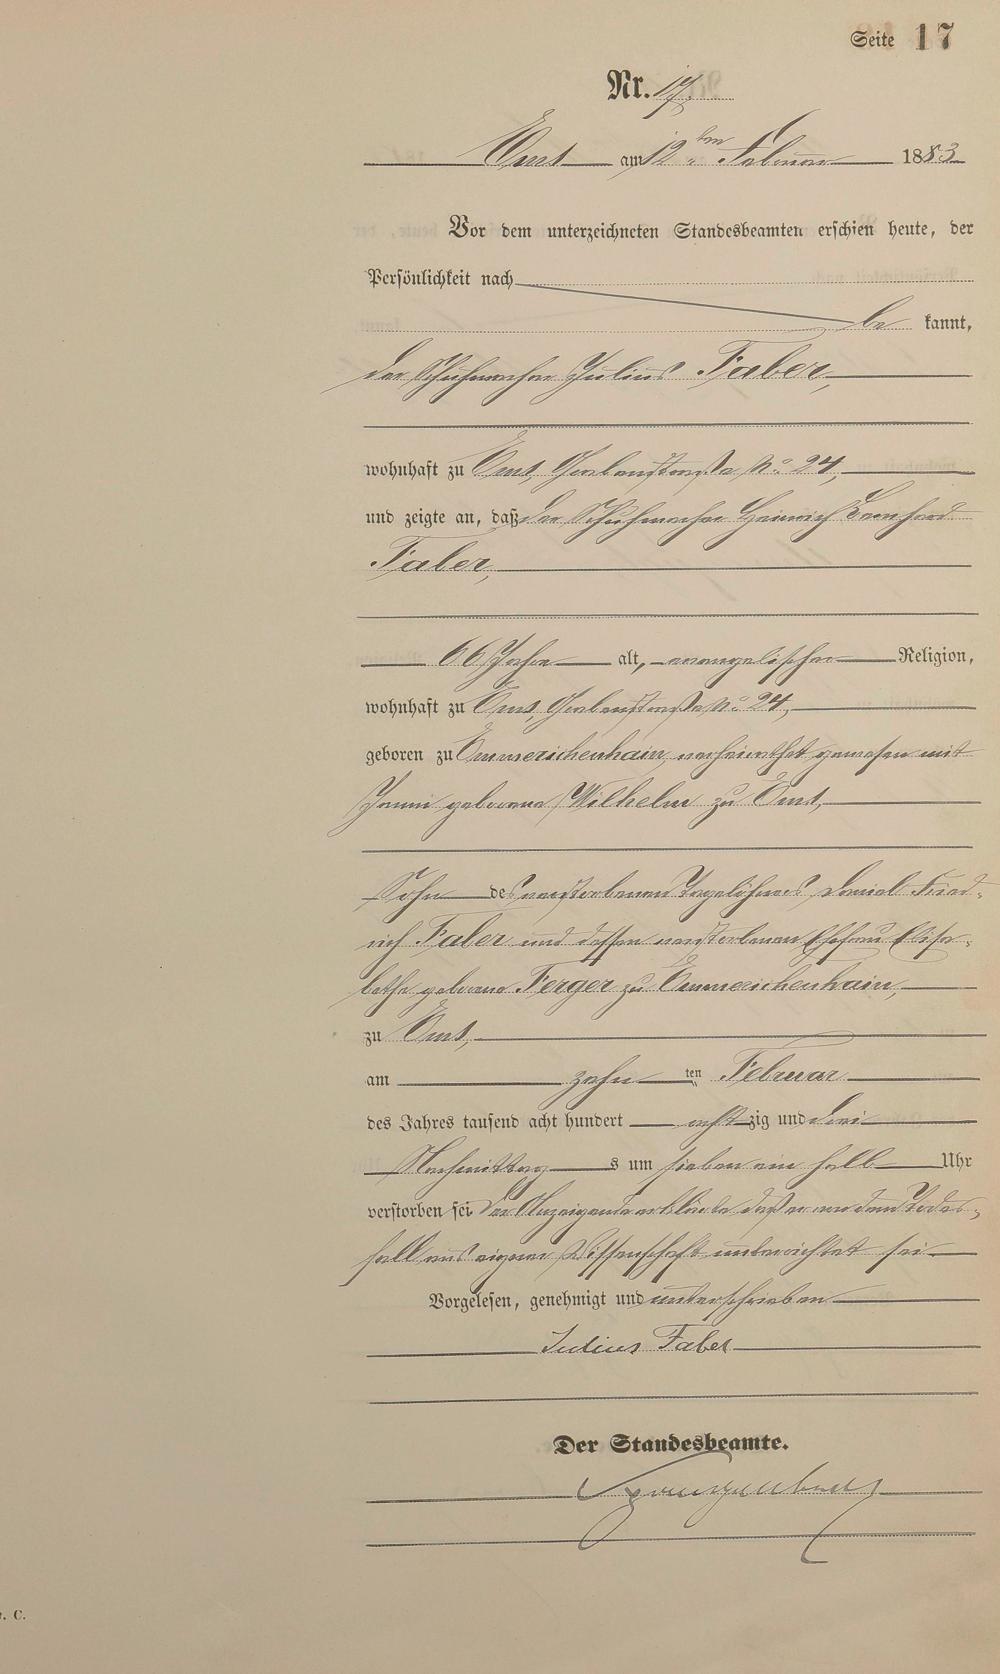 Seite 17
Nr. 17.
Ems am 12ten Februar 1883
Vor dem unterzeichneten Standesbeamten erschien heute, der
Persönlichkeit nach
be kannt,
der Schuhmacher Julius Faber,
wohnhaft zu Ems, Grabenstraße No 24,
und zeigte an, daß der Schuhmacher Heinrich Bernhard
Faber,
66 Jahre alt, evangelischer Religion,
wohnhaft zu Ems, Grabenstraße No 24,
geboren zu Emmerichenhain, verheirathet gewesen mit
geborene Wilhelm zu Ems,
Sohn des verstorbenen Tagelöhners Daniel Fried-
rich Faber und dessen verstorbenen Ehefrau Elisa-
betha geborene Ferger zu Emmerichenhain,
zu Ems,
am zehn ten Februar
des Jahres tausend acht hundert acht zig und drei
Nachmittag s um sieben ein halb Uhr
verstorben sei. Der Anzeigende erklärte daß er von dem Todes-
fall aus eigner Wissenschaft unterrichtet sei.
Vorgelesen, genehmigt und unterschrieben
Julius Faber
Der Standesbeamte.
. C.